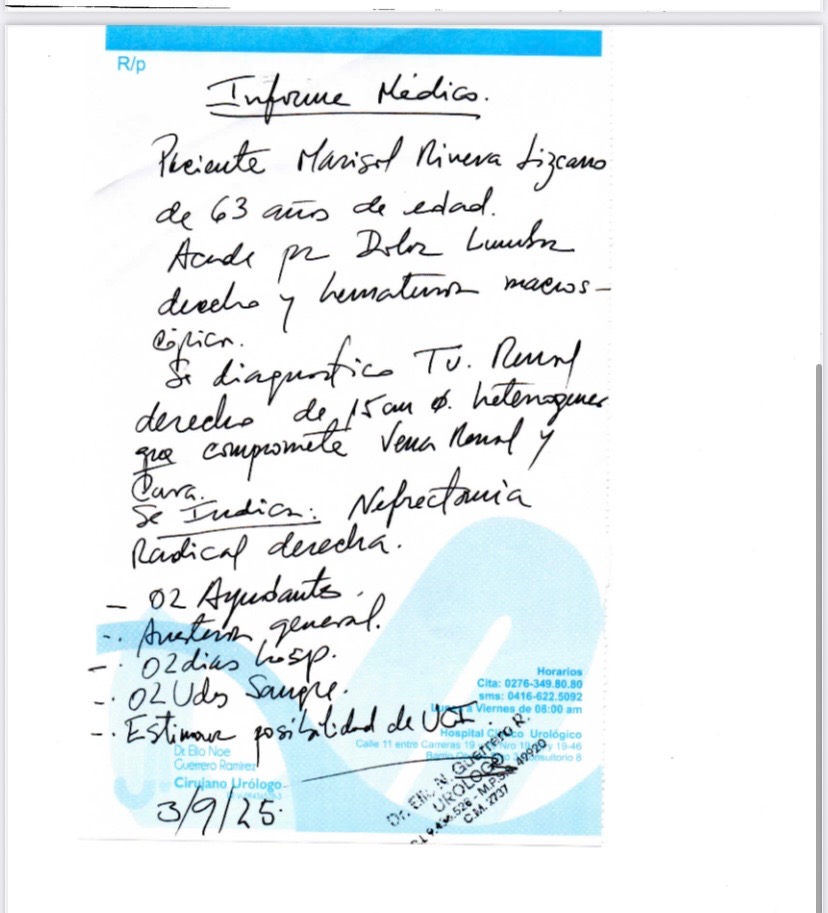 R/p
Informe Médico.
Paciente Marisol Rivera Lizcano
de 63 años de edad.
Acude por Dolor Lumbar
derecho y hematuria macros-
cópica.
Se diagnostico Tu. Renal
derecho de 15 cm Ø. heterogenea
que compromete Vena Renal y
Cava.
Se Indica: Nefrectomia
Radical derecha.
- 02 Ayudantes.
-. Anestesia general.
-. 02 dias hosp.
-. 02 Uds Sangre.
-. Estimar posibilidad de UCI.
Horarios
Cita: 0276-349.80.80
sms: 0416-622.5092
Lunes a Viernes de 08:00 am
Hospital Clínico Urológico
Calle 11 entre Carreras 19 y 19-46
Consultorio 8
Dr. Elio Noe
Guerrero Ramirez
Cirujano Urólogo
3/9/25.
Dr. Elio N. Guerrero R.
UROLOGO
C.M. 2737